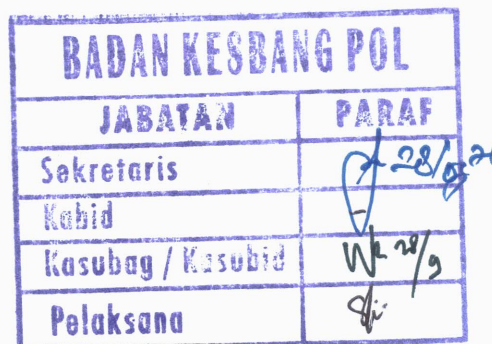 BADAN KESBANG POL
JABATAN PARAF
Sekretaris
Kabid
Kasubag / Kasubid 28/9
Pelaksana